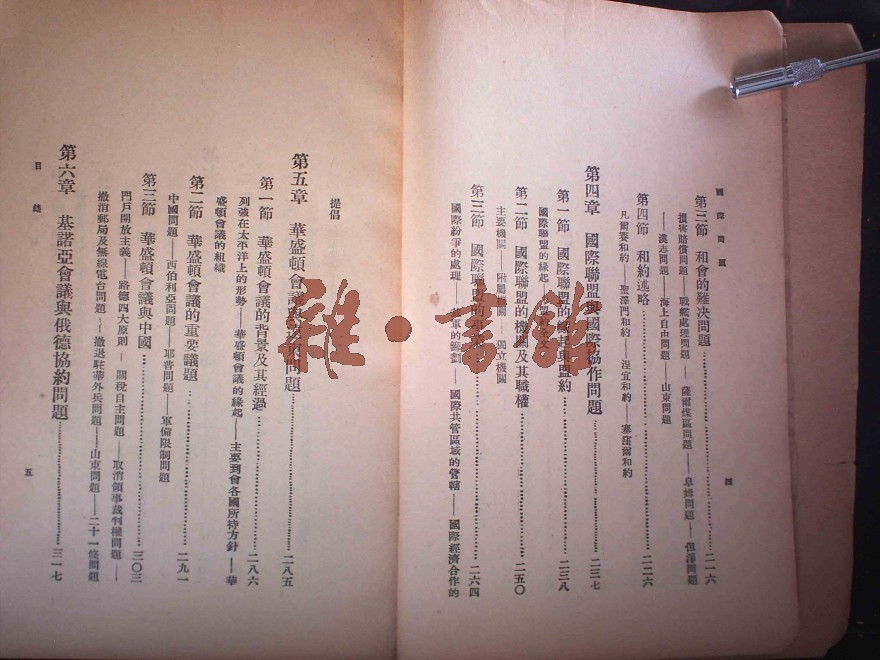 國際問題
第三節　和會的難决問題……二一六
損害賠償問題——戰艦處理問題——薩爾煤區問題——阜姆問題——但澤問題
——漢志問題——海上自由問題——山東問題
第四節　和約述略……二二六
凡爾賽和約——聖澤門和約——涅宜和約——塞窪爾和約
第四章　國際聯盟與國際協作問題……二三七
第一節　國際聯盟的緣起與盟約……二三八
國際聯盟的緣起
第二節　國際聯盟的機關及其職權……二五〇
主要機關——附屬機關——獨立機關
第三節　國際聯盟的事業……二六四
國際紛爭的處理——裁軍的籌劃——國際共管區域的管轄——國際經濟合作的
四
提倡
第五章　華盛頓會議與遠東問題……二八五
第一節　華盛頓會議的背景及其經過……二八六
列強在太平洋上的形勢——華盛頓會議的緣起——主要到會各國所持方針——華
盛頓會議的組織
第二節　華盛頓會議的重要議題……二九一
中國問題——西伯利亞問題——耶普問題——軍備限制問題
第三節　華盛頓會議與中國……三〇三
門戶開放主義——路德四大原則——關稅自主問題——取消領事裁判權問題——
撤消郵局及無綫電台問題——撤退駐華外兵問題——山東問題——二十一條問題
第六章　基諾亞會議與俄德協約問題……三一七
目錄
五
雜·書館